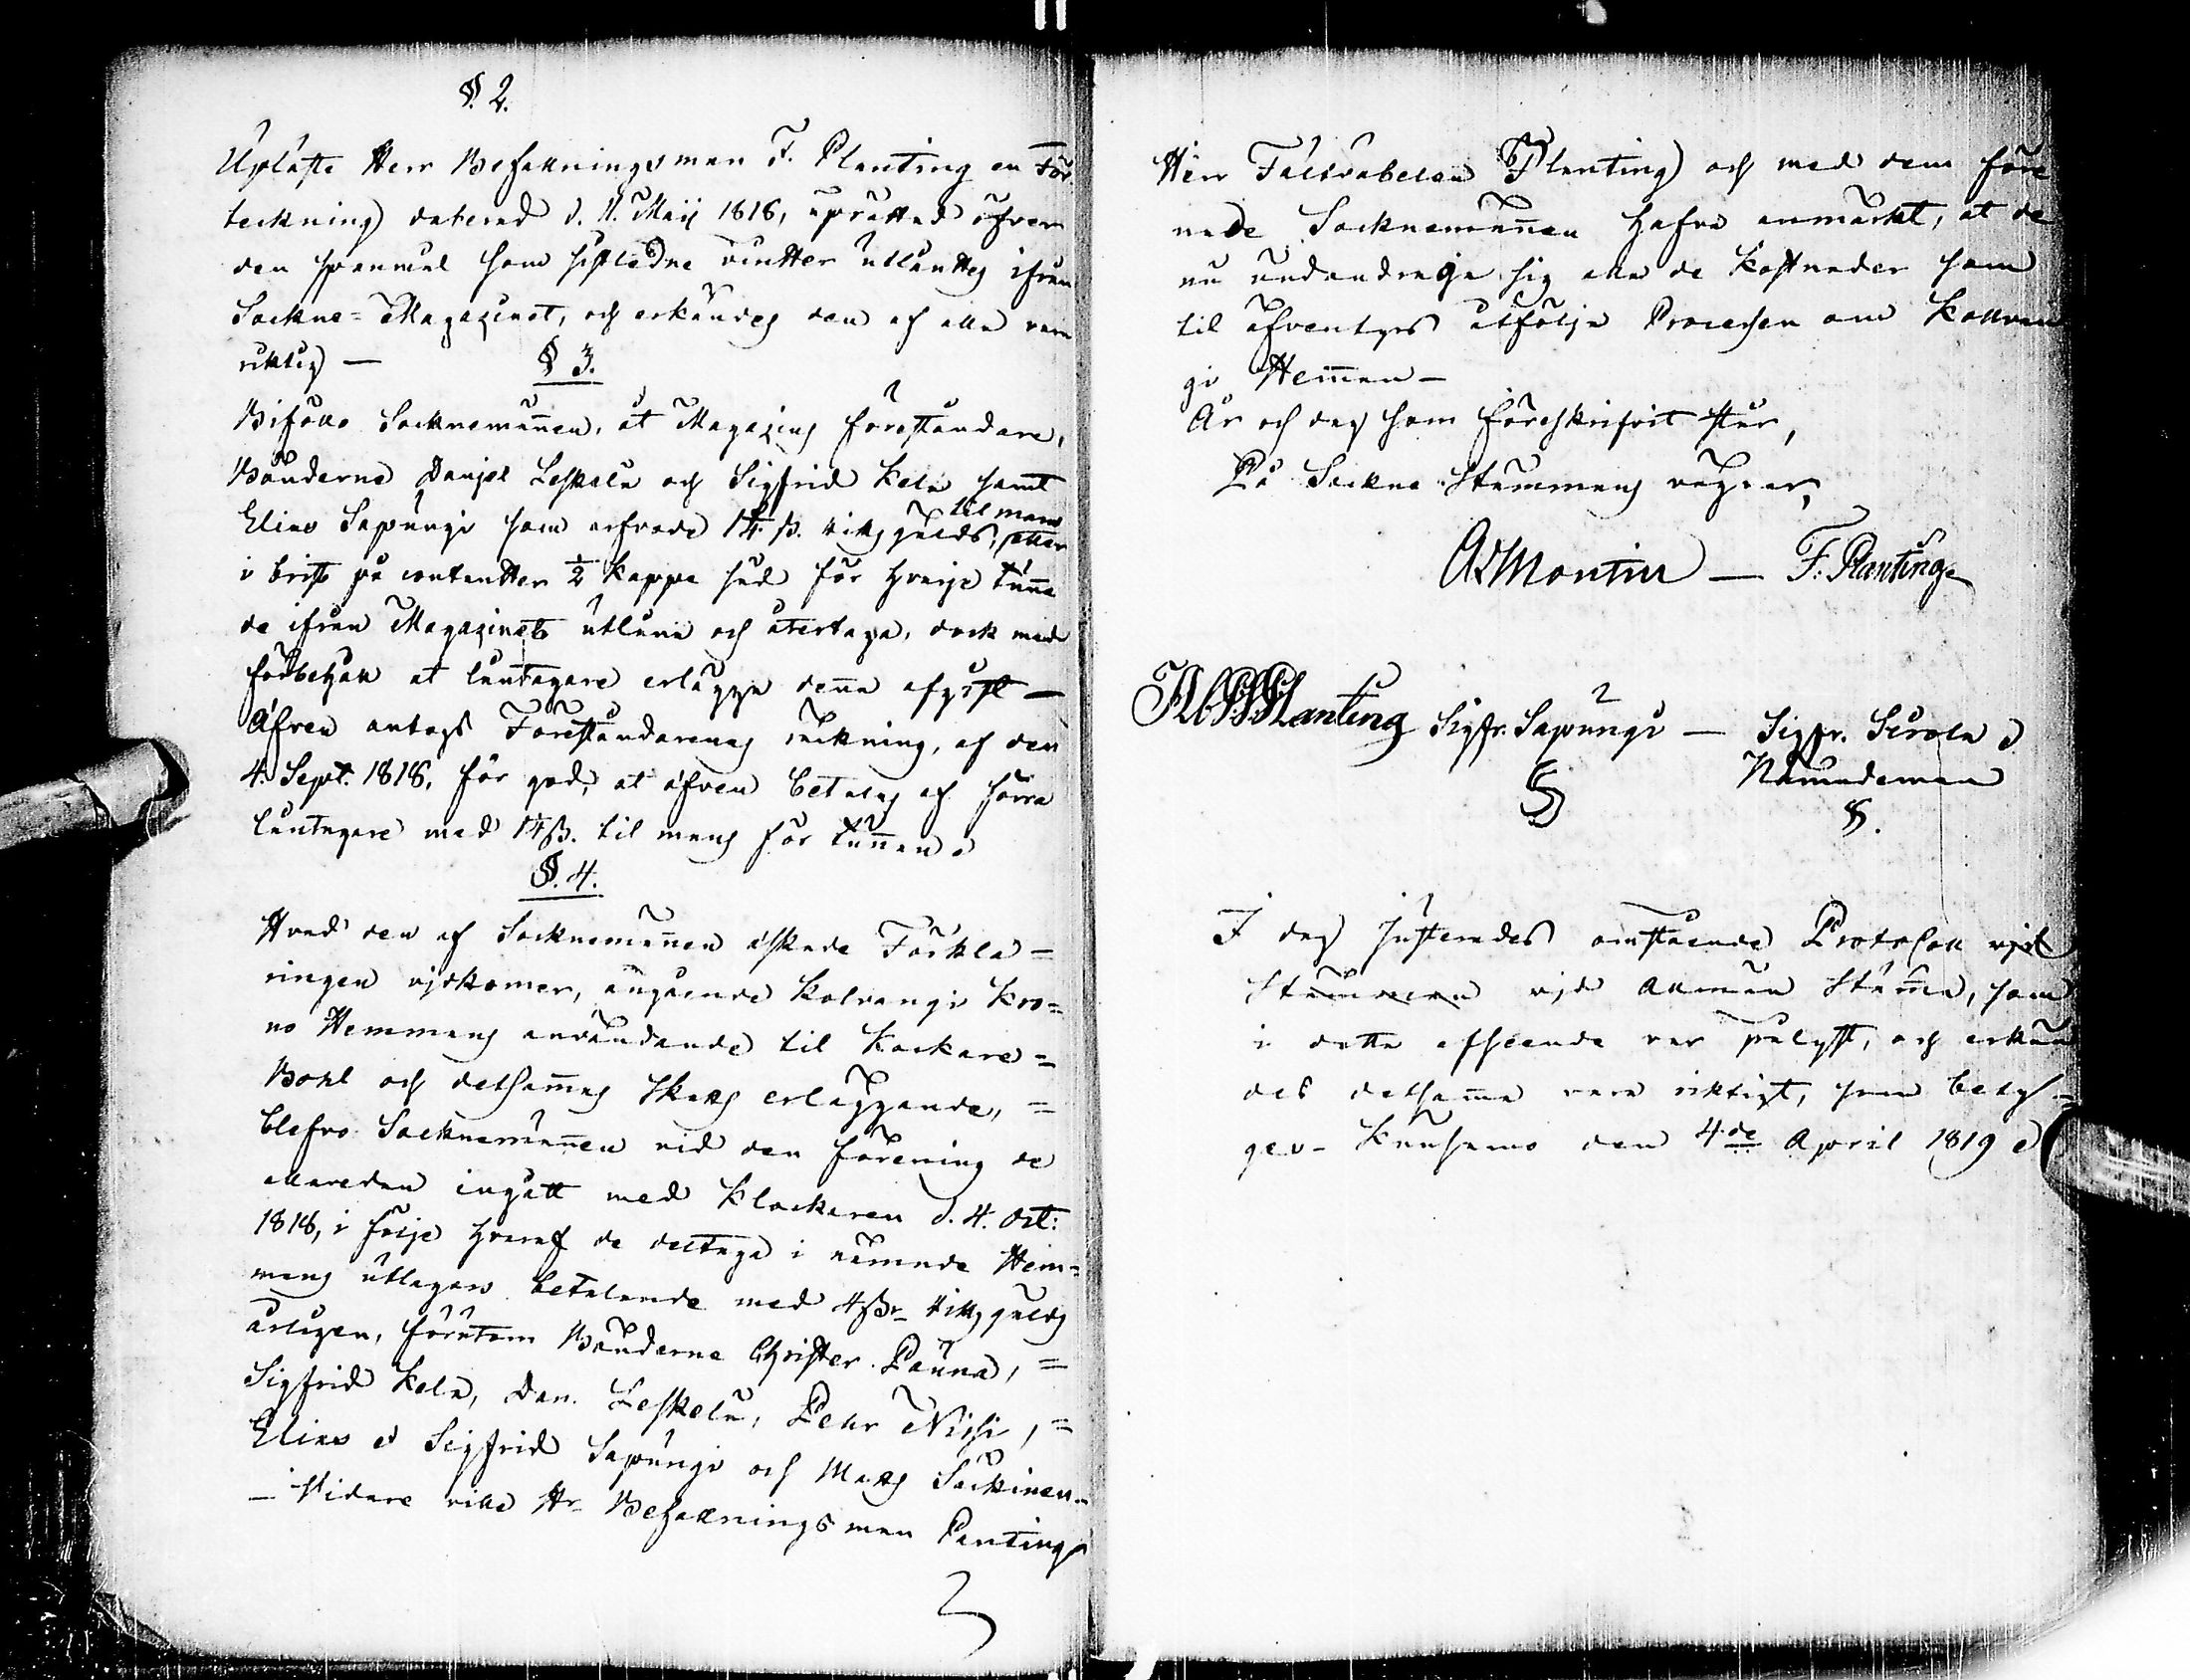 §. 2.
Uplästes Herr Befallningsman F. Planting en För-
teckning daterad d. 11. Maij 1818, uprättad öfver
den spanmål som sistledne vintter utlåntes ifrån
Sockne-Magazinet, och erkändes den af alla vara
riktig —
§ 3.
Biföllo Socknemännen, at Magazins föreståndare,
Bönderne Daniel Leskelä och Sigfrid Kela samt
Elias Säpungi som
til mans
i brist på contanter ½ Kappa säd för hvarje Tunna
de ifrån Magazinet utlåna och återtaga, dock med
förbehåll at låntagare erlägga denna afgift —
Äfven antogs Föreståndarenas räkning, af den
4. Sept. 1818, för god, at äfven betalas af förra
låntagare med til mans för Tunnan.
§. 4.
Hvad den af Socknemännen äskade Förkla-
ringen vidkommer, angående Kolvangi Kro-
no Hemmans användande til Klockare-
Bohl och detsammas Skatts erläggande, =
blefvo Socknemännen vid den förening de
allaredan ingått med Klockaren d. 4. Oct:
1818, i följe hvaraf de deltaga i nämnde Hem-
mans utlagors betalande med Riksgälds
årligen, förutom Bönderne Christer Pauna, =
Sigfrid Kela, Dan. Leskelä, Pehr Nissi, =
Elias o Sigfrid Säpungi och Matts Säckinen -
— Vidare ville Hr Befallningsman Panting
Herr Fältväbelen Planting och med dem före
nade Socknemännen hafva anmärkt, at de
nu undandraga sig alla de kostnader som
til äfventyrs åtfölja Processen om Kollvan
gi Hemman —
År och dag som föreskrifvit står,
På Sockne Stämmans vägnar,
A Montin — F. Planting
Planting Sigfr. Säpungi — Sigfr. Sirola
Nämndeman
I dag justerades omstående Protokoll vid
Stämman vid Allmän Stämma, som
i detta afseende var pålyst, och erkän
des detsamma vara riktigt, som bety-
gas - Kuusamo den 4de April 1819